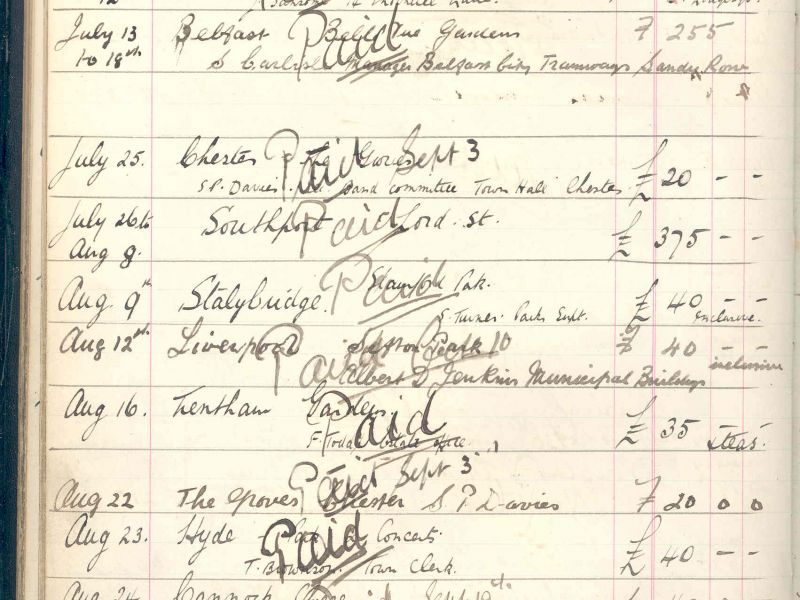 July 13 Belfast Belle Vue Gardens Paid £ 255
to 18th S Carlisle Manager Belfast City Tramways Sandy Row
July 25. Chester The Groves Paid Sept 3 £ 20 - -
S.P. Davies. Band Committee Town Hall Chester
July 26 to Southport Paid Lord. St. £ 375 - -
Aug 8.
Aug. 9th Stalybridge. Stamford Pk. Paid £ 40 - -
S. Turner. Parks Supt. exclusive.
Aug 12th Liverpool Sefton Park Paid 10 £ 40 - -
Albert D Jenkins Municipal Buildings inclusive
Aug 16. Trentham Gardens Paid £ 35 & teas.
F. Todd Estate Office.
Paid Sept 3
Aug 22 The Groves Chester S P Davies £ 20 0 0
Aug 23. Hyde Park Concerts. Paid £ 40 - -
T. Brownson Town Clerk.
Aug 24. Cannock Chase Sept 19th